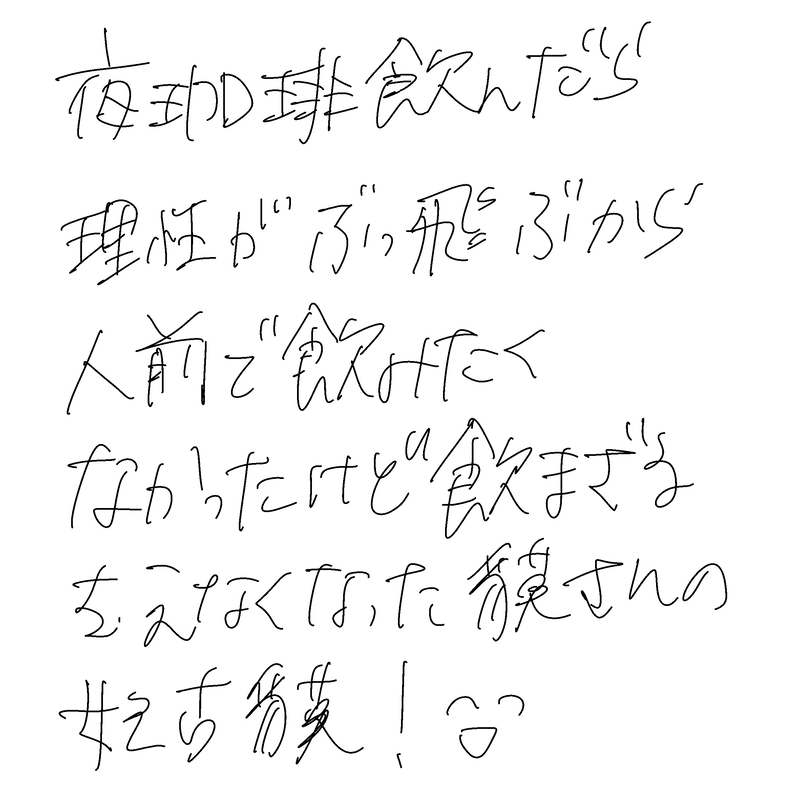 夜珈琲飲んだら
理性がぶっ飛ぶから
人前で飲みたく
なかったけど飲まざる
をえなくなった貘さんの
妃古貘！